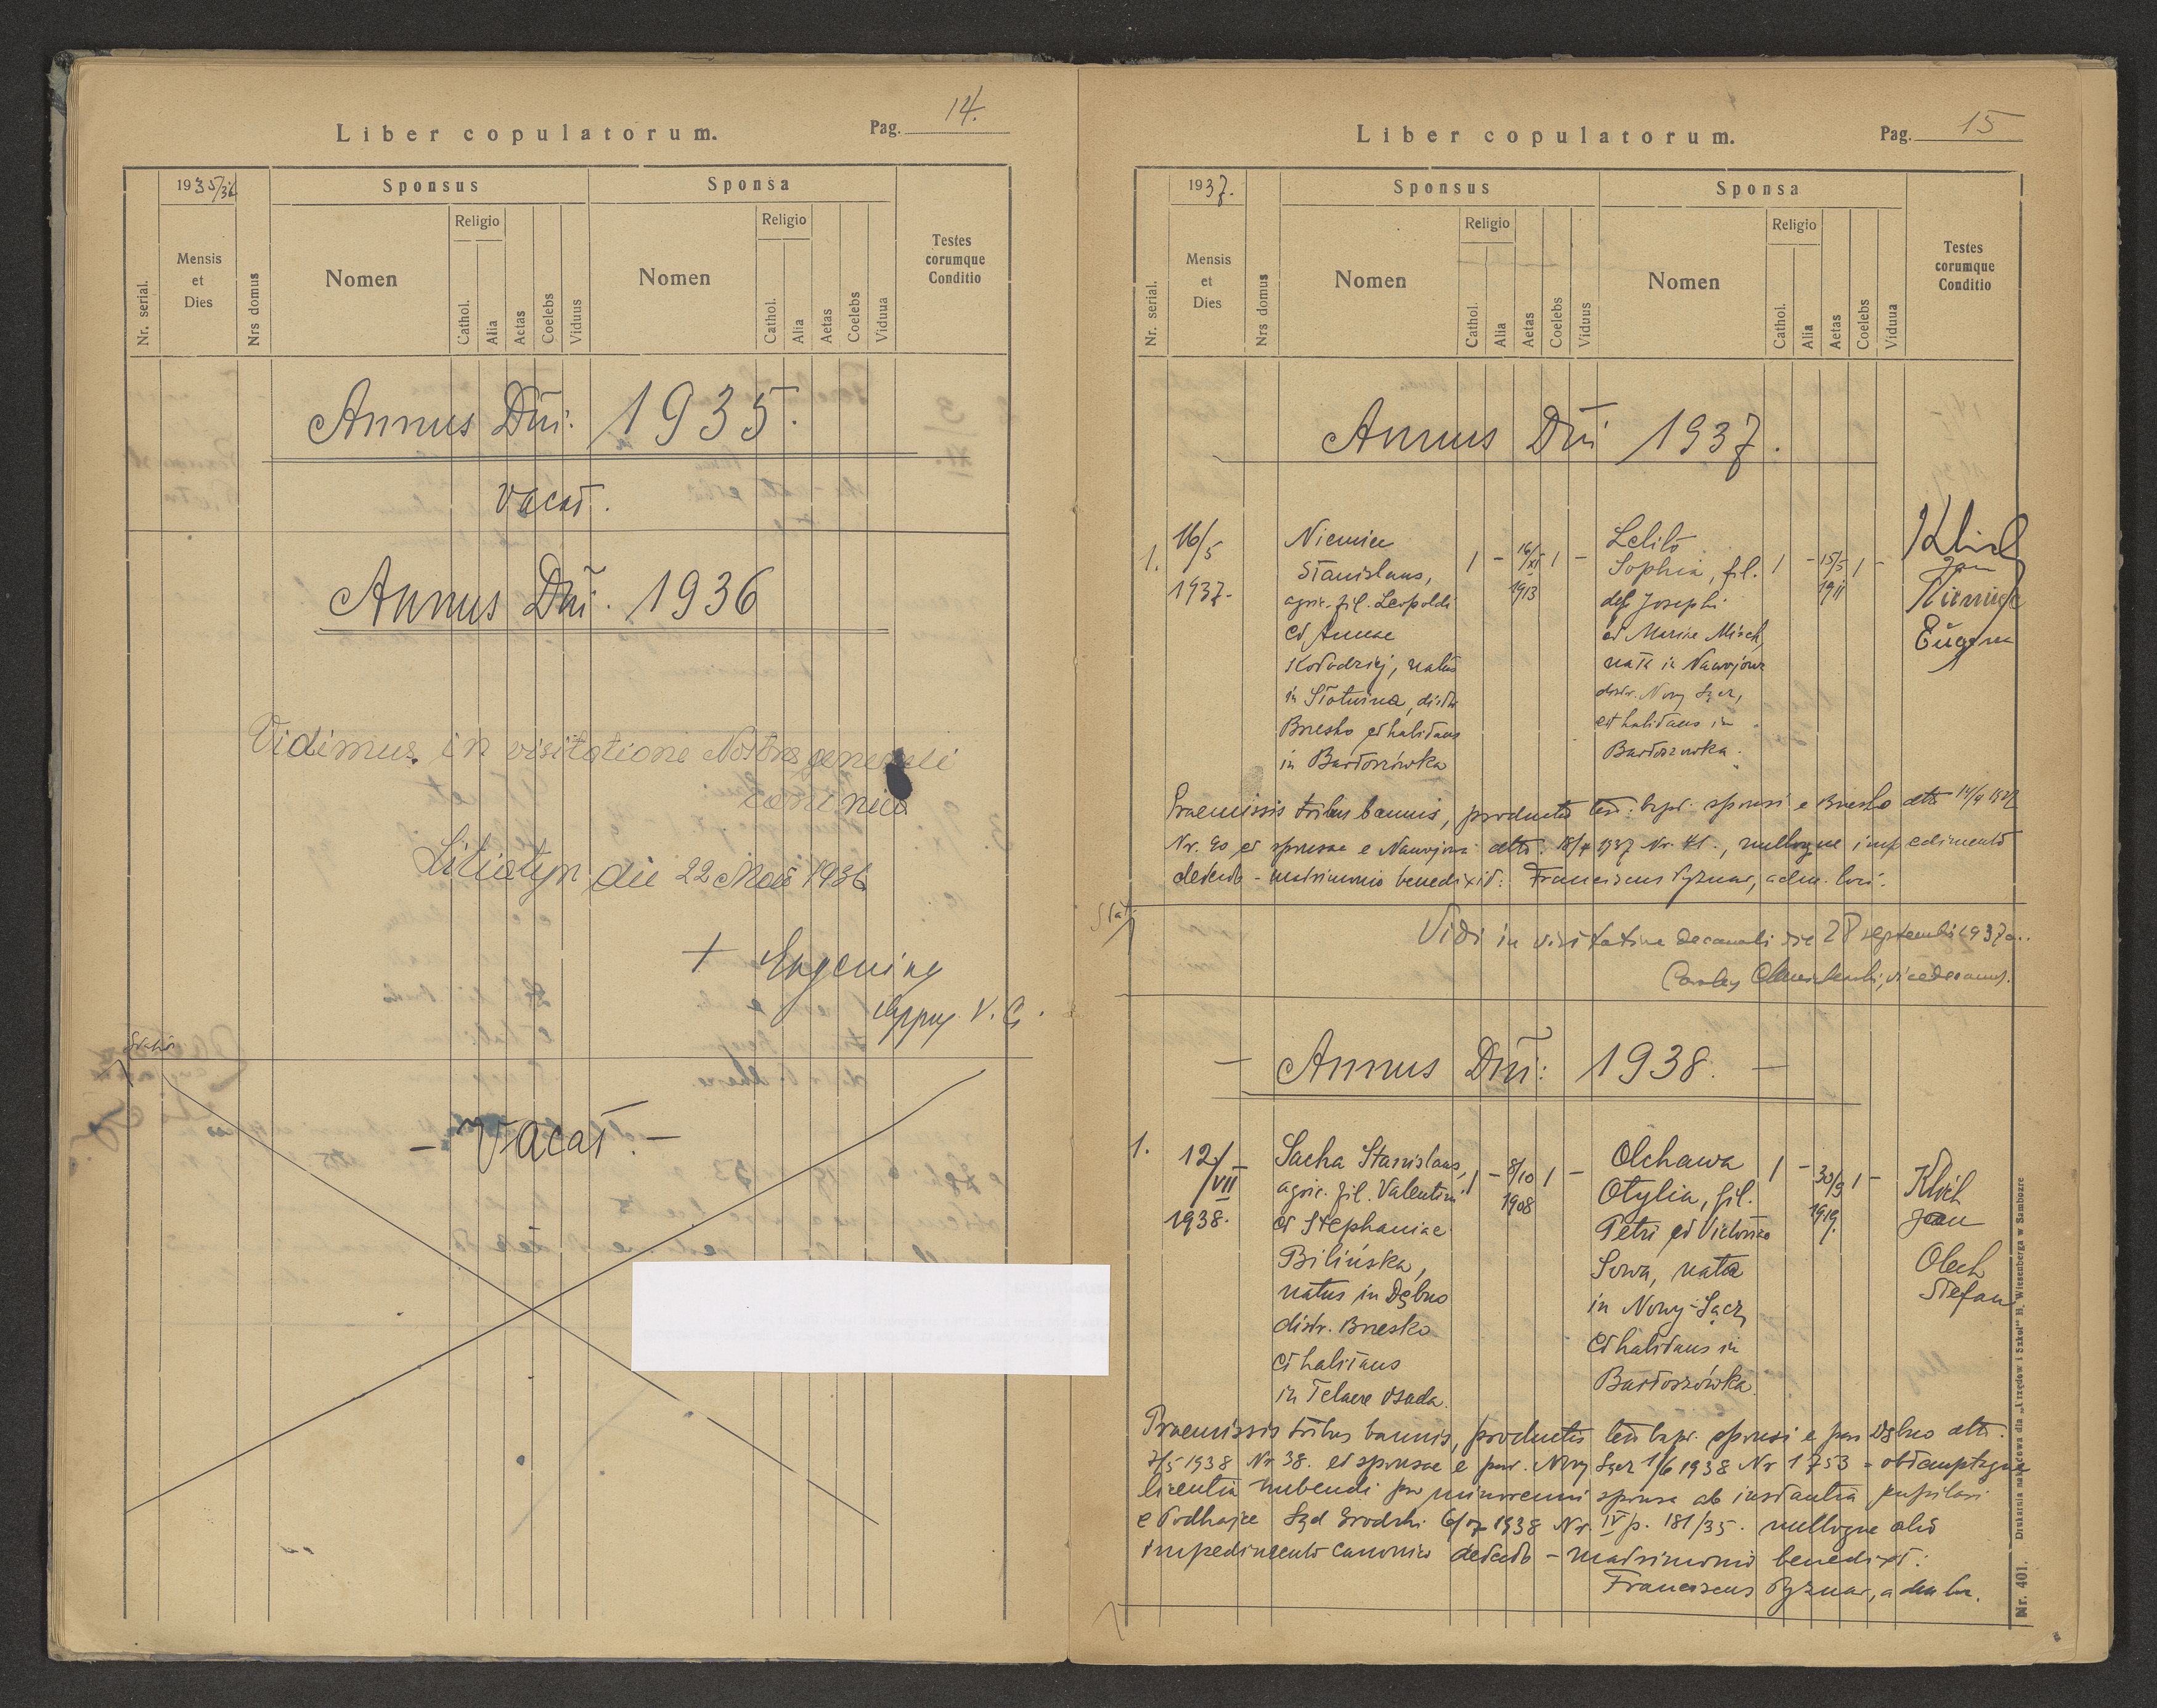 Liber copulatorum.
Pag. 14.
1935/36
Sponsus
Sponsa
Nr. serial.
Mensis
et
Dies
Nrs domus
Nomen
Religio
Cathol.
Alia
Aetas
Coelebs
Viduus
Nomen
Religio
Cathol.
Alia
Aetas
Coelebs
Vidua
Testes
eorumque
Conditio
Annus Dni: 1935.
vacat.
Annus Dni. 1936
Vidimus in visitatione Nostra generali
canonica
Litiatyn die 22 Maii 1936
+ Eugenius
V. G.
- Vacat. -
Liber copulatorum.
Pag. 15
1937.
Sponsus
Sponsa
Nr. serial.
Mensis
et
Dies
Nrs domus
Nomen
Religio
Cathol.
Alia
Aetas
Coelebs
Viduus
Nomen
Religio
Cathol.
Alia
Aetas
Coelebs
Viduua
Testes
corumque
Conditio
Annus Dni 1937.
1.
16/5
1937.
Niemiec
Stanislaus,
agric. fil. Leopoldi
et Annae
Kołodziej, natus
in Słotwina, distr.
Brzesko et habitans
in Bartoszówka
1 - 16/XI 1 -
1913
Lelito
Sophia, fil.
def. Josephi
et Mariae Misch,
nata in Nawojowa
distr. Nowy Sącz,
et habitans in
Bartoszówka.
1 - 15/5 1 -
1911
Klich
Jan
Niemiec
Eugen
Praemissis tribus bannis, productis test. bapt. sponsi e Brzesko dtto 14/4 1937
Nr. 90 et sponsae e Nawojowa dtto. 18/4 1937 Nr. 41., nulloque impedimento
detecto - matrimonio benedixit: Franciscus Pyznar, adm. loci.
Vidi in visitatione decanali die 28 septembris 1937 a.
vicedecanus.
- Annus Dni: 1938. -
1.
12/VII
1938.
Sacha Stanislaus,
agric. fil. Valentini
et Stephaniae
Bilińska,
natus in Dębno
distr. Brzesko
et habitans
in Telacze osada.
1 - 8/10 1 -
1908
Olchawa
Otylia, fil.
Petri et Victoriae
Sowa, nata
in Nowy-Sącz
et habitans in
Bartoszówka.
1 - 30/9 1 -
1919.
Klich
Jan
Olech
Stefan
Praemissis tribus bannis, productis test. bapt. sponsi e par. Dębno dtto.
7/5 1938 Nr 38. et sponsae e par. Nowy Sącz 1/6 1938 Nr 1753 - obtemptaque
licentia nubendi pro minorenni sponsa ab instantia pupilari
e Podhajce Sąd Grodzki 6/07 1938 Nr. IV p. 181/35. nulloque alio
impedimento canonico detecto - matrimonio benedixit:
Franciscus Pyznar, adm. loc.
Nr. 401. Drukarnia nakładowa dla „Urzędów i Szkół" H. Wiesenberga w Samborze